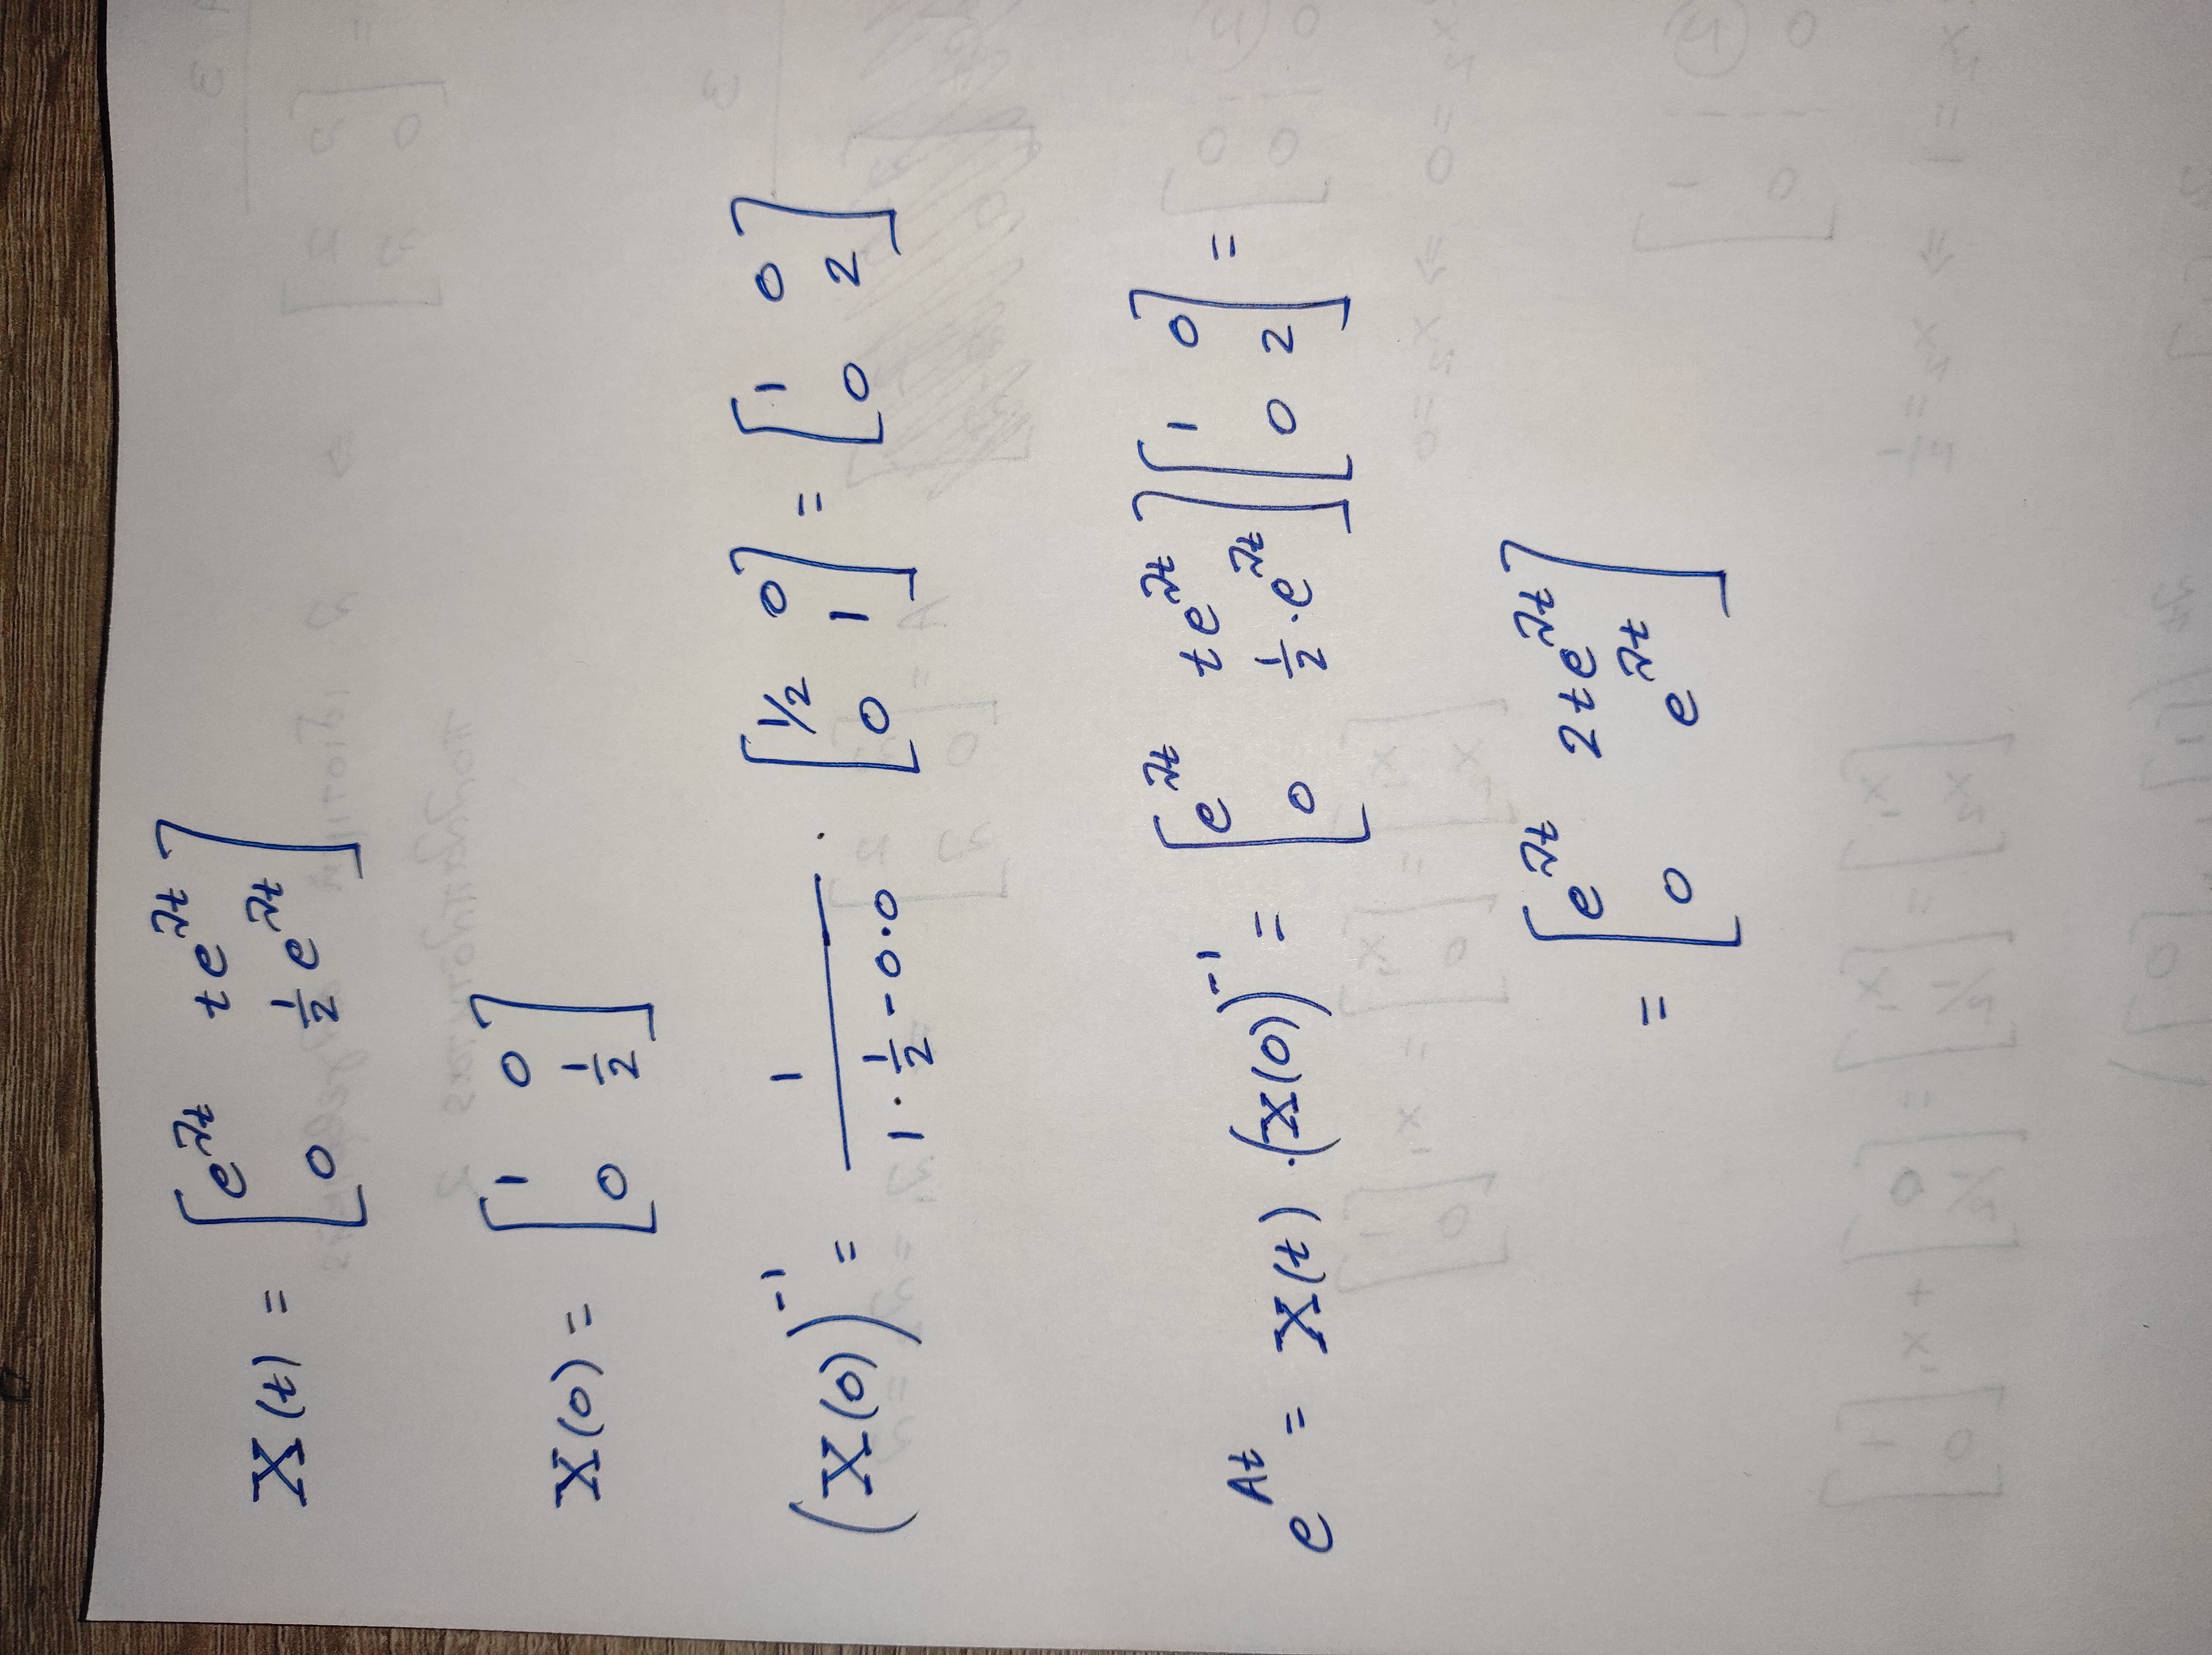 X(t) = [e^{λt} te^{λt}; 0 1/2 e^{λt}]
X(0) = [1 0; 0 1/2]
(X(0))^{-1} = 1/(1·1/2-0·0) · [1/2 0; 0 1] = [1 0; 0 2]
e^{At} = X(t)·(X(0))^{-1} = [e^{λt} te^{λt}; 0 1/2·e^{λt}][1 0; 0 2] =
= [e^{λt} 2te^{λt}; 0 e^{λt}]